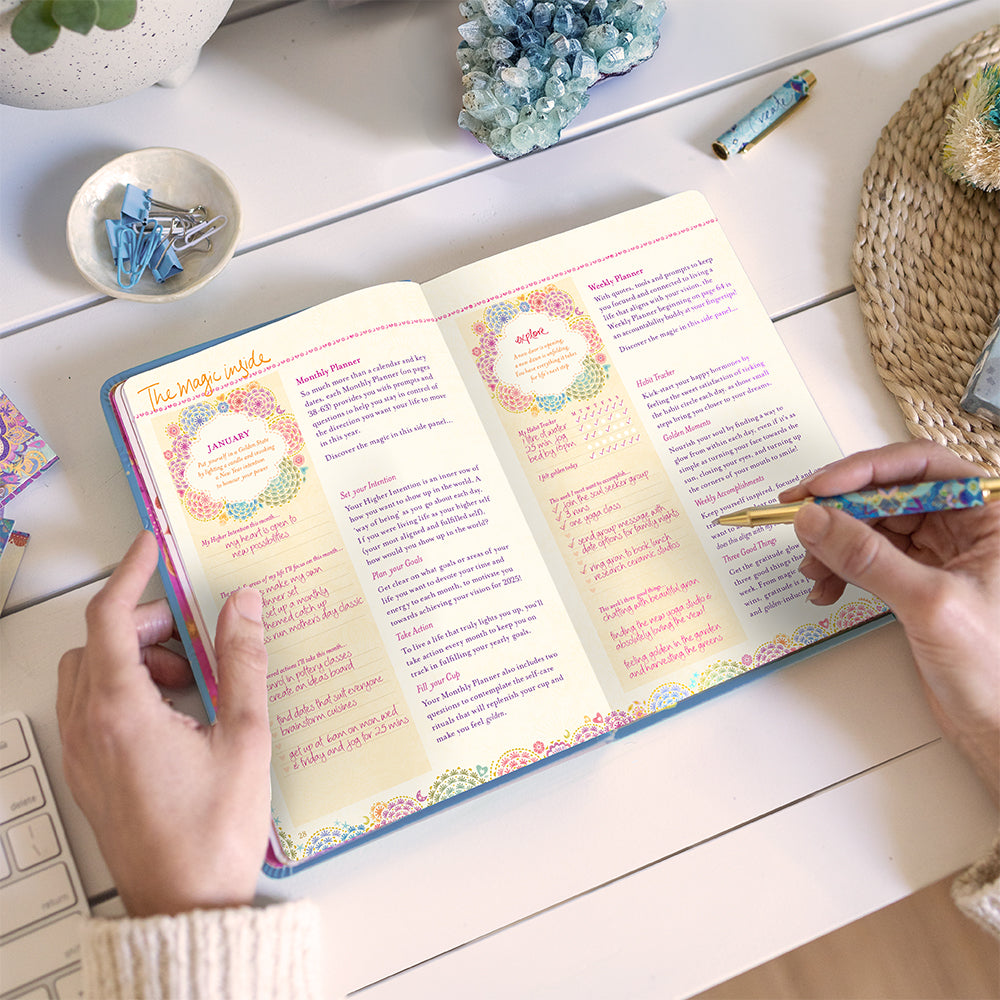 The Magic inside
JANUARY
Put yourself in a Golden State
by lighting a candle and invoking
a New Year intention
to honour your power.
Higher Intention this month...
my heart is open to
new possibilities
areas of my life I'll focus on this month...
make my own
dinner set
set up a monthly
themed catch up
run mother's day class
actions I'll take this month...
enrol in pottery classes
create an ideas board
find dates that suit everyone
brainstorm cuisines
get up at 6am on mon wed
& friday and jog for 25 mins
28
Monthly Planner
So much more than a calendar and key
dates, each Monthly Planner (on pages
38-63) provides you with prompts and
questions to help you stay in control of
the direction you want your life to move
in this year.
Discover the magic in this side panel...
Set your Intention
Your Higher Intention is an inner row of
how you want to show up in the world. A
'way of being' as you go about each day.
If you were living life as your higher self
(your most aligned and fulfilled self),
how would you show up in the world?
Plan your Goals
Get clear on what areas of your
life you want to devote your time and
energy to each month, to motivate you
towards achieving your vision for 2025!
Take Action
To live a life that truly lights you up, you'll
take action every month to keep you on
track in fulfilling your yearly goals.
Fill your Cup
Your Monthly Planner also includes two
questions to contemplate the self-care
rituals that will replenish your cup and
make you feel golden.
explore
A new door is opening,
a new dawn is unfolding.
You have everything it takes
for life's next step.
My Habit Tracker
M T W T F S S
litre of water
25 min jog
bed by 10pm
I felt golden today
This week I want to accomplish...
join the soul seeker group
3 runs
one yoga class
send group message with
date options for family nights
ring gran to book lunch
research ceramic studios
This week's three good things...
chatting with beautiful gran
finding the new yoga studio &
absolutely loving the view!
feeling golden in the garden
and harvesting the greens
Weekly Planner
With quotes, tools and prompts to keep
you focused and committed to living a
life that aligns with your vision, the
Weekly Planner beginning on page 64 is
an accountability buddy at your fingertips!
Discover the magic in this side panel...
Habit Tracker
Kick-start your happy hormones by
feeling the sweet satisfaction of ticking
the habit circle each day, as those small
steps bring you closer to your goals.
Golden Moments
Nourish your soul by finding a way to
glow from within each day, even if it's as
simple as turning your face towards the
sun, closing your eyes, and turning up
the corners of your mouth to smile!
Weekly Accomplishments
Keep yourself inspired, focused
want to
does this align with my
Three Good Things
Get the gratitude glowing
three good things that
week. From magic
wins, gratitude is a
and golden-inducing
delete
return